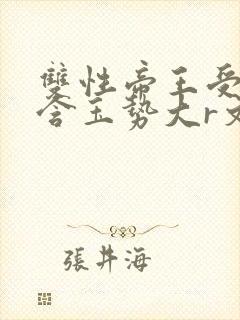 雙性帝王受
含玉勢大r文
張井海